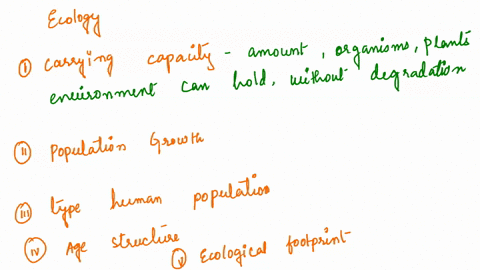 Ecology
(i) Carrying capacity - amount, organisms, plants
environment can hold, without degradation
(ii) Population Growth
(iii) type human population
(iv) Age structure
(v) Ecological footprint